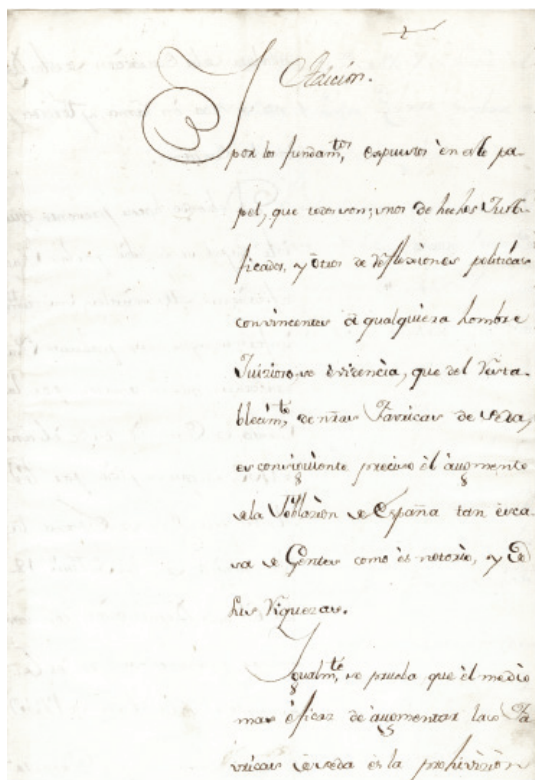 Adición.
por los fundam.tos expuestos en este pa-
pel, que todos son, unos de hechos Justi-
ficados, y otros de Reflexiones politicas
convincentes à qualquiera hombre
Juizioso, se evidencia, que del Resta-
blecim.to de nr̃as Favricas de seda,
es consiguiente preciso el augmento
de la Poblazion de España tan esca-
sa de Gentes como es notorio, y de
sus Riquezas.
Igualm.te se prueba que el medio
mas eficaz de augmentar las Fa-
vricas de seda es la prohivizion